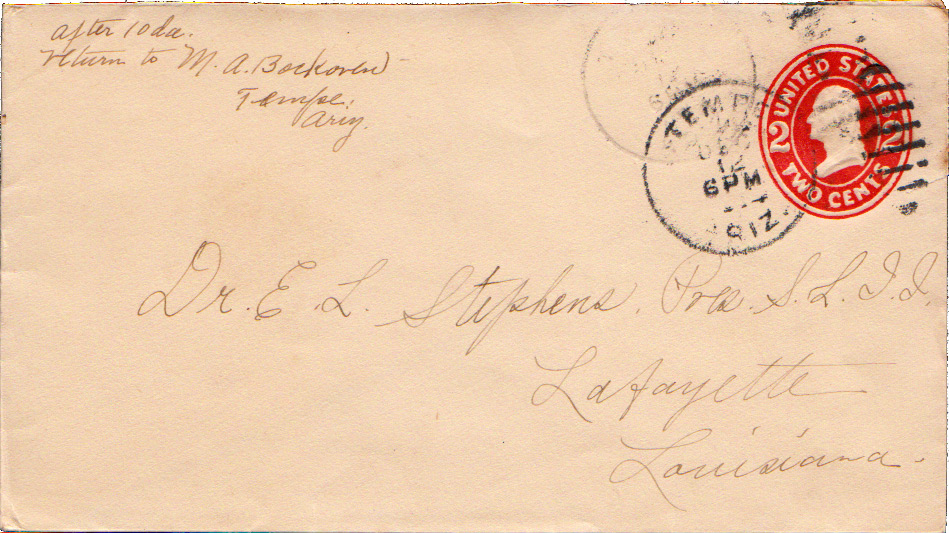 after 10 da.
return to M. A. Bockoven
Tempe,
Ariz.
UNITED STATES
2 2
TWO CENTS
TEMPE
DEC
12
6 PM
ARIZ.
Dr. E. L. Stephens. Pres. S. L. I. I.
Lafayette
Louisiana.